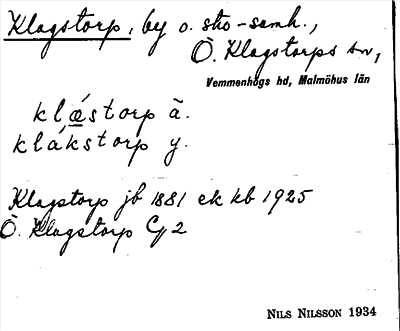 Klagstorp, by o. sto-samh.,
Ö. Klagstorps sn,
Vemmenhögs hd, Malmöhus län
klǽstorp ä.
klákstorp y.
Klagstorp jb 1881 ek kb 1925
Ö. Klagstorp Cg 2
NILS NILSSON 1934